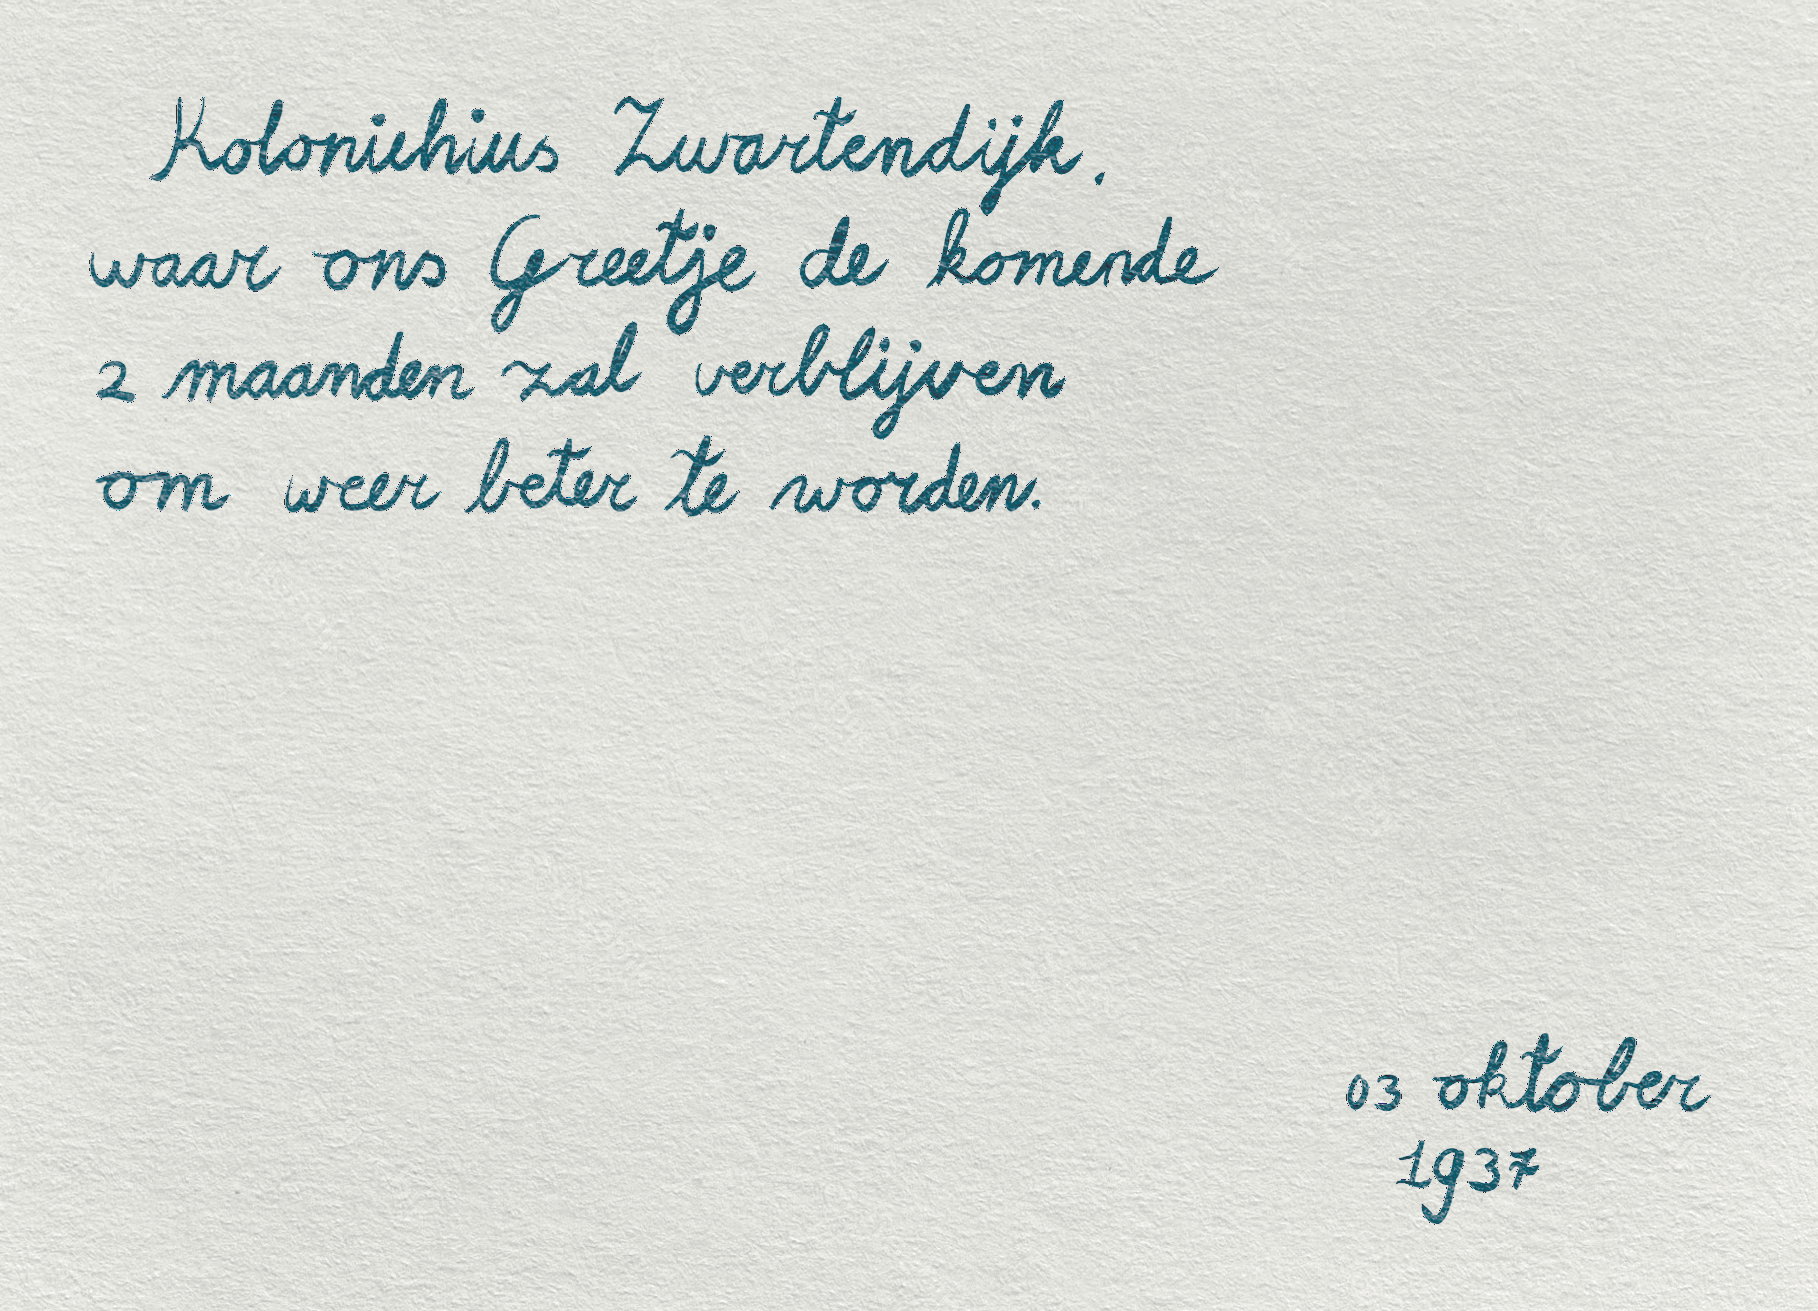 Koloniehius Zwartendijk,
waar ons Greetje de komende
2 maanden zal verblijven
om weer beter te worden.
03 oktober
1937